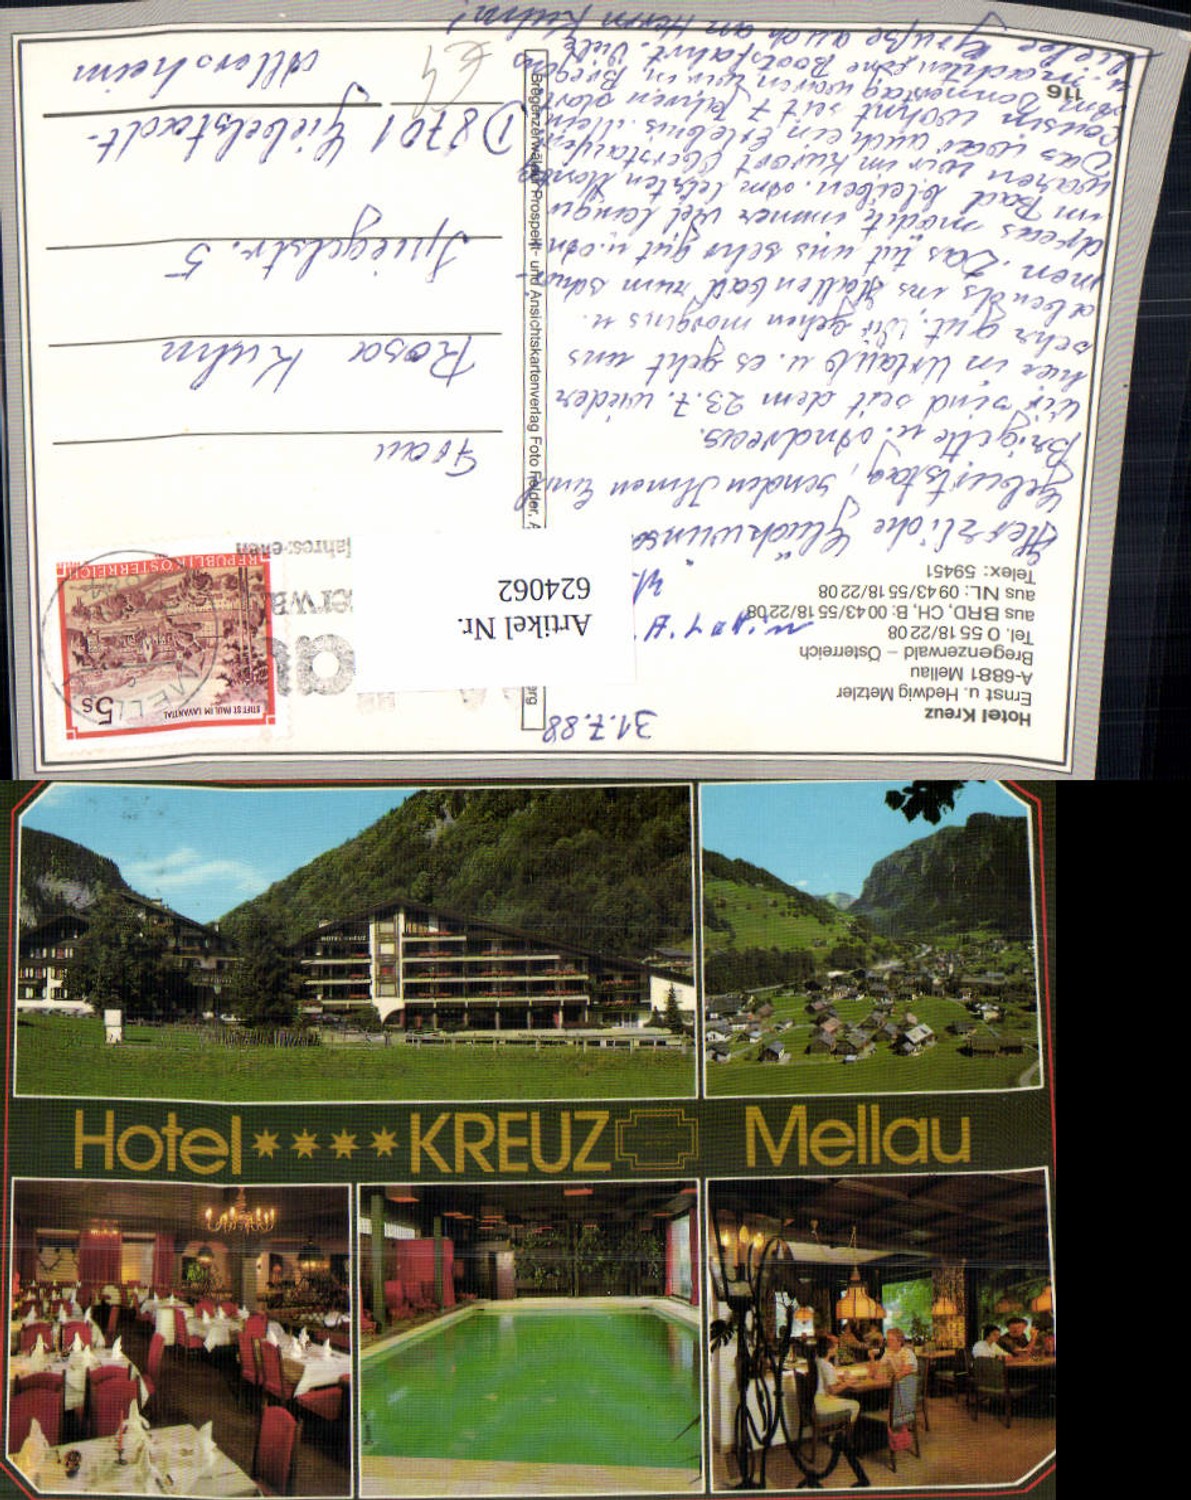 Hotel Kreuz
Ernst u. Hedwig Metzler
A-6881 Mellau
Bregenzerwald – Österreich
Tel. 0 55 18/22 08
aus BRD, CH, B: 00 43/55 18/22 08
aus NL: 09 43/55 18/22 08
Telex: 59451
31.7.88
Herzliche Glückwünsc
Geburtstag, senden Ihnen
Brigitte u. Andreas.
Wir sind seit dem 23.7. wieder
hier in Urlaub u. es geht uns
sehr gut. Wir gehen morgens u.
abends ins Hallenbad zum schwim-
men. Das tut uns sehr gut u. An-
dreas möchte immer viel länger
im Bad bleiben. Am letzten Montag
waren wir im Kurort Oberstaufen
Das war auch ein Erlebnis. Mein
Cousin wohnt seit 7 Jahren dort
Am Donnerstag waren wir in Bregenz
u. machten eine Bootsfahrt. Viele
liebe Grüße auch an Herrn Kuhn!
116
Bregenzerwälder Prospekt- und Ansichtskartenverlag Foto Felder,
Artikel Nr.
624062
STIFT ST. PAUL IM LAVANTTAL
5s
REPUBLIK ÖSTERREICH
Frau
Rosa Kuhn
Spiegelstr. 5
D 8701 Giebelstadt-
Allersheim
€4
HOTEL KREUZ
Hotel **** KREUZ Mellau